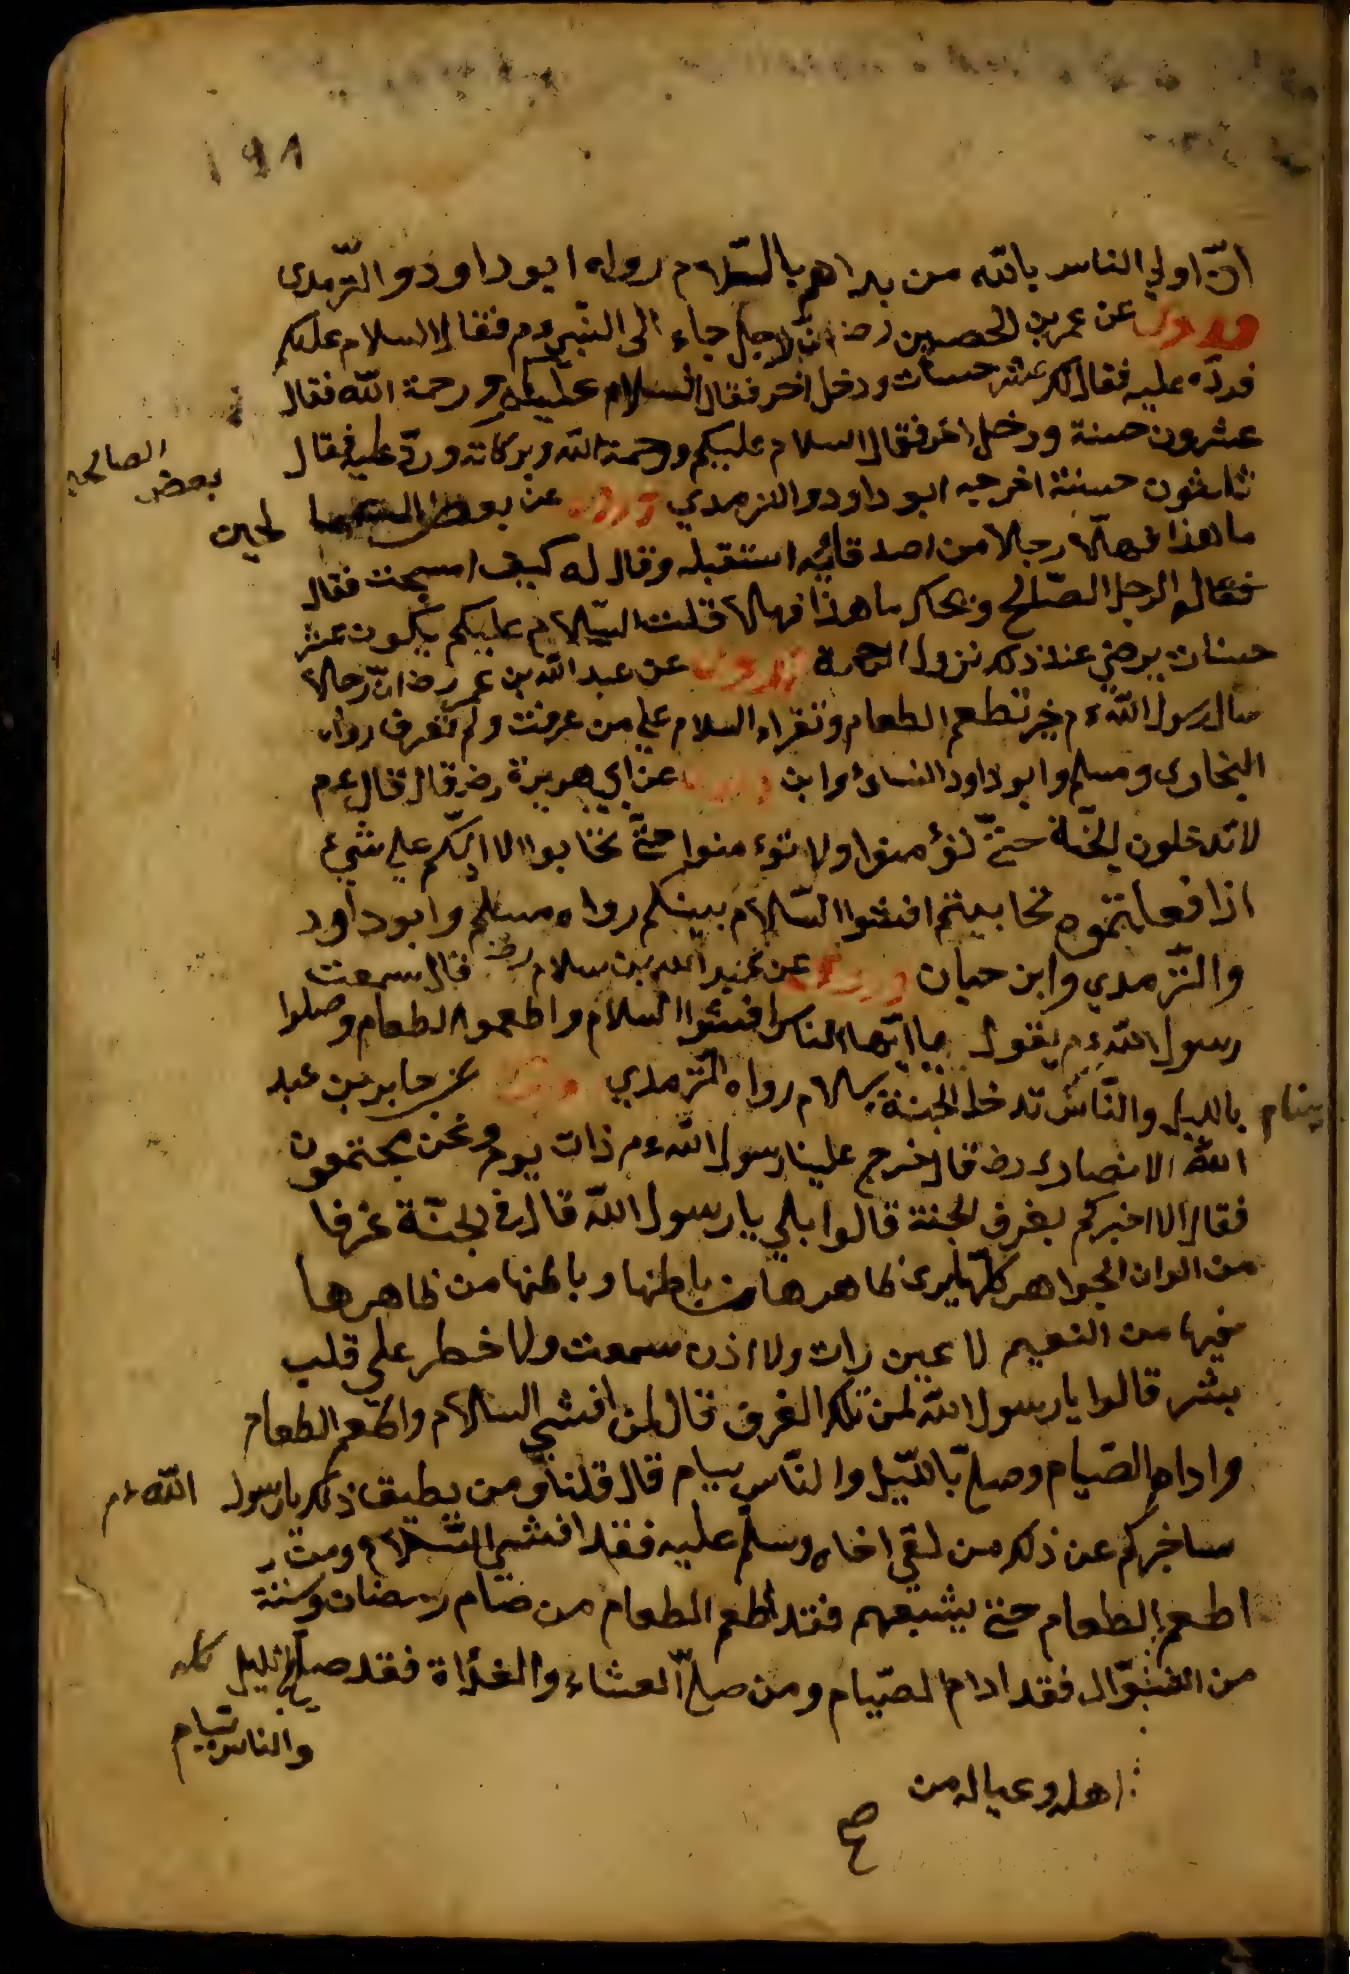 ١٩٨
انّ اولي الناس بالله من بداهم بالسّلام رواه ابوداود والترّمدى
وروى عن عمر بن الحصين رض انّ رجل جاء الى النبّي عم فقال السلام عليكم
فردّه عليه فقال لكر عشر حسنات ودخل اخر فقال السلام عليكم ورحمة الله فقال
عشرون حسنة ودخل اخر فقال السلام عليكم ورحمة الله وبركاته وردّ عليه فقال
ثلثون حسنة اخرجه ابوداود والترمدي وروى عن بعض لحين
بعض الصالحين
ما هذا فهلّا رجلا من اصدقائه استقبله وقال له كيف اصبحت فقال
فقال له الرجل الصّالح ويحك ما هذا فهلا قلت السّلام عليكم يكون عشر
حسنات يرضي عند ذلك نزول الرحمة وروى عن عبد الله بن عمر رض انّ رجلا
سال رسول الله عم خير تطعم الطعام وتقراء السلام علي من عرفت ولم تعرف رواه
البخارى ومسلم وابوداود النسائ وابن وروى عن ابي هريرة رض قال قال عم
لا تدخلون الجنّة حتيّ تؤمنوا ولا توءمنوا حتيّ تحابوا الا ادلكّم علي شيء
اذا فعلتموه تحابيتم افشوا السّلام بينكم رواه مسلم وابوداود
والترّمدي وابن حبان وروى عن عبد الله بن سلام رض قال سمعت
رسول الله عم يقول يا ايّها الناس افشوا السلام واطعموا الطعام وصلوا
بالليل والنّاس ينام تدخل الجنة بسلام رواه الترّمدي وروى عن جابر بن عبد
الله الانصارى رض قال خرج علينا رسول الله عم ذات يوم ونحن مجتمعون
فقال الا اخبركم بغرف الجنة قالوا بلي يا رسول الله قال في الجنّة غرفا
من الوان الجواهر كلّها يرى ظاهرها من باطنها وباطنها من ظاهرها
فيها من النعيم لا عين رات ولا اذن سمعت ولا خطر علي قلب
بشر قالوا يا رسول الله لمن تلك الغرف قال لمن افشي السلام واطعم الطعام
وادام الصّيام وصليّ بالليّل والنّاس نيام قال قلنا ومن يطيق ذلك يا رسول الله عم
ساخبركم عن ذلك من لقي اخاه وسلّم عليه فقد افشي السّلام ومن
اطعم الطعام حتي يشبعهم فقد اطعم الطعام من صام رمضان وستة
من الشوّال فقد ادام الصّيام ومن صليّ العشاء والغداة فقد صلي الليل كله
والناس نيام
اهله وعياله من
صح